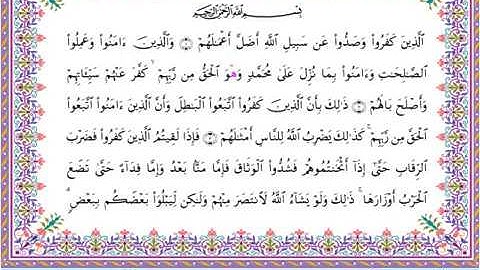 بِسْمِ اللَّهِ الرَّحْمَٰنِ الرَّحِيمِ
الَّذِينَ كَفَرُوا۟ وَصَدُّوا۟ عَن سَبِيلِ اللَّهِ أَضَلَّ أَعْمَٰلَهُمْ ۝١ وَالَّذِينَ ءَامَنُوا۟ وَعَمِلُوا۟
الصَّٰلِحَٰتِ وَءَامَنُوا۟ بِمَا نُزِّلَ عَلَىٰ مُحَمَّدٍ وَهُوَ الْحَقُّ مِن رَّبِّهِمْ ۙ كَفَّرَ عَنْهُمْ سَيِّـَٔاتِهِمْ
وَأَصْلَحَ بَالَهُمْ ۝٢ ذَٰلِكَ بِأَنَّ الَّذِينَ كَفَرُوا۟ اتَّبَعُوا۟ الْبَٰطِلَ وَأَنَّ الَّذِينَ ءَامَنُوا۟ اتَّبَعُوا۟
الْحَقَّ مِن رَّبِّهِمْ ۚ كَذَٰلِكَ يَضْرِبُ اللَّهُ لِلنَّاسِ أَمْثَٰلَهُمْ ۝٣ فَإِذَا لَقِيتُمُ الَّذِينَ كَفَرُوا۟ فَضَرْبَ
الرِّقَابِ حَتَّىٰٓ إِذَآ أَثْخَنتُمُوهُمْ فَشُدُّوا۟ الْوَثَاقَ فَإِمَّا مَنًّۢا بَعْدُ وَإِمَّا فِدَآءً حَتَّىٰ تَضَعَ
الْحَرْبُ أَوْزَارَهَا ۚ ذَٰلِكَ وَلَوْ يَشَآءُ اللَّهُ لَانتَصَرَ مِنْهُمْ وَلَٰكِن لِّيَبْلُوَا۟ بَعْضَكُم بِبَعْضٍ ۗ